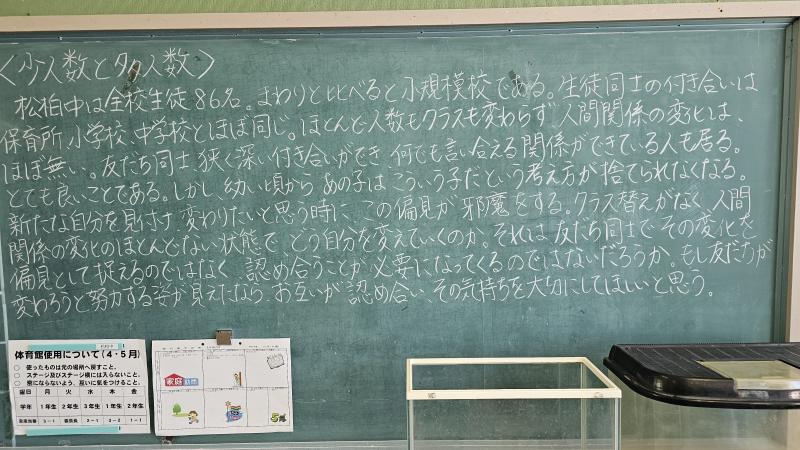 〈少人数と多人数〉
松柏中は全校生徒86名。まわりと比べると小規模校である。生徒同士の付き合いは
保育所、小学校、中学校とほぼ同じ。ほとんど人数もクラスも変わらず人間関係の変化は、
ほぼ無い。友だち同士、狭く深い付き合いができ、何でも言い合える関係ができている人も居る。
とても良いことである。しかし、幼い頃から「あの子はこういう子だ」という考え方が捨てられなくなる。
新たな自分を見出す、変わりたいと思う時に、この偏見が邪魔をする。クラス替えがなく、人間
関係の変化のほとんどない状態で、どう自分を変えていくのか。それは友だち同士で、その変化を
偏見として捉えるのではなく、認め合うことが必要になってくるのではないだろうか。もし友だちが
変わろうと努力する姿が見えたなら、お互いが認め合い、その気持ちを大切にしてほしいと思う。
体育館使用について(4・5月)
○ 使ったものは元の場所へ戻すこと。
○ ステージ及びステージ横には入らないこと。
○ 密にならないよう、互いに気をつけること。
曜日 月 火 水 木 金
学年 1年生 2年生 3年生 1年生 2年生
3-1 2-1 2-2 1-1
家庭訪問